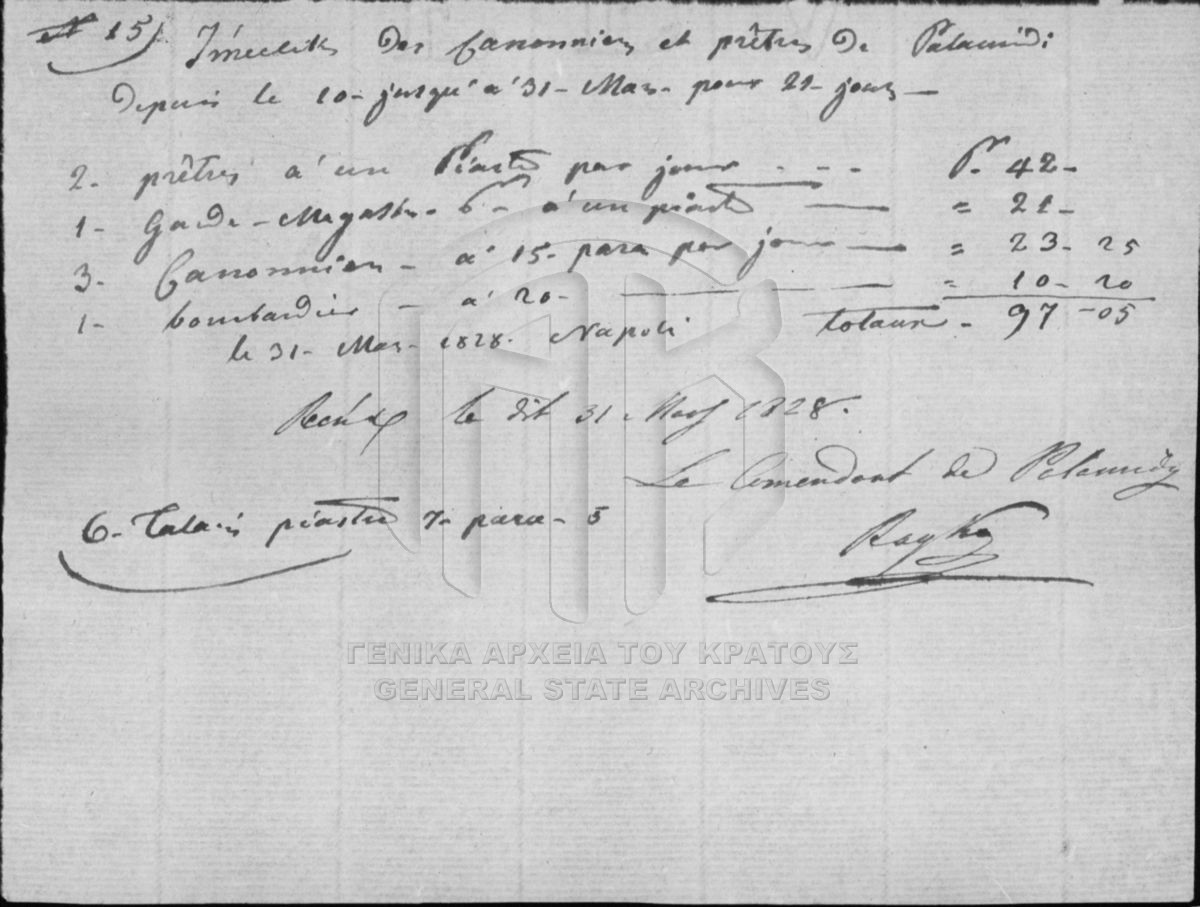 N 15)
Iméclitks des Canonniers et prêtres de Palamidi
depuis le 10- jusqu'a' 31- Mars- pour 21- jours —
2- prêtres a' un Piastre par jour - - - P. 42-
1- Garde-Megasin- a' un piastre — = 21-
3- Canonniers - a' 15- para par jour — = 23- 25
1- bombardier - a' 20- — — = 10- 20
le 31- Mars- 1828. Napoli totaux - 97 -05
le dit 31 Mars 1828.
Le Comendant de Palamidy
Rayko
6- Talaris piastre 7- para- 5
ΓΕΝΙΚΑ ΑΡΧΕΙΑ ΤΟΥ ΚΡΑΤΟΥΣ
GENERAL STATE ARCHIVES